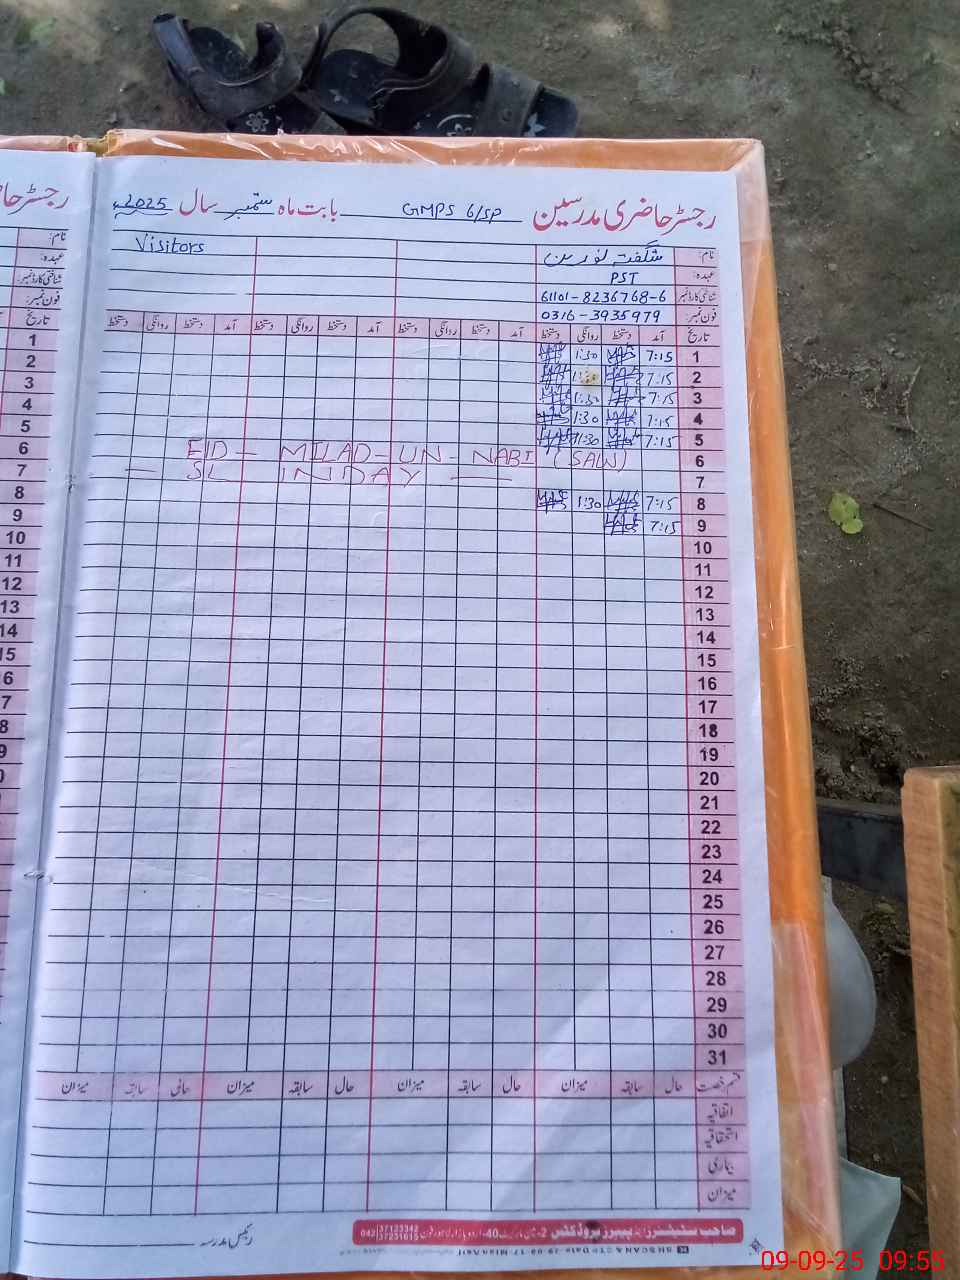 رجسٹر حاضری مدرسین GMPS 6/SP بابت ماہ ستمبر سال 2025ء
نام: شگفتہ نورین Visitors
عہدہ: PST
شناختی کارڈ نمبر: 61101-8236768-6
فون نمبر: 0316-3935979
تاریخ آمد دستخط روانگی دستخط آمد دستخط روانگی دستخط آمد دستخط روانگی دستخط آمد دستخط روانگی دستخط
1 7:15 1:30
2 7:15
3 7:15 1:30
4 7:15 1:30
5 7:15 1:30
6 EID - MILAD - UN - NABI (SAW)
7
8 7:15 1:30
9 7:15
10
11
12
13
14
15
16
17
18
19
20
21
22
23
24
25
26
27
28
29
30
31
قسم رخصت حال سابقہ میزان حال سابقہ میزان حال سابقہ میزان حالی سابقہ میزان
اتفاقیہ
استحقاقیہ
بیماری
میزان
رئیس مدرسہ
صاحب سٹیشنرز اینڈ پیپرز پروڈکٹس
042 37123342
37231615
رجسٹر حا
نام:
عہدہ:
شناختی کارڈ نمبر:
فون نمبر:
تاریخ
1
2
3
4
5
6
7
8
9
10
11
12
13
14
15
09-09-25 09:55